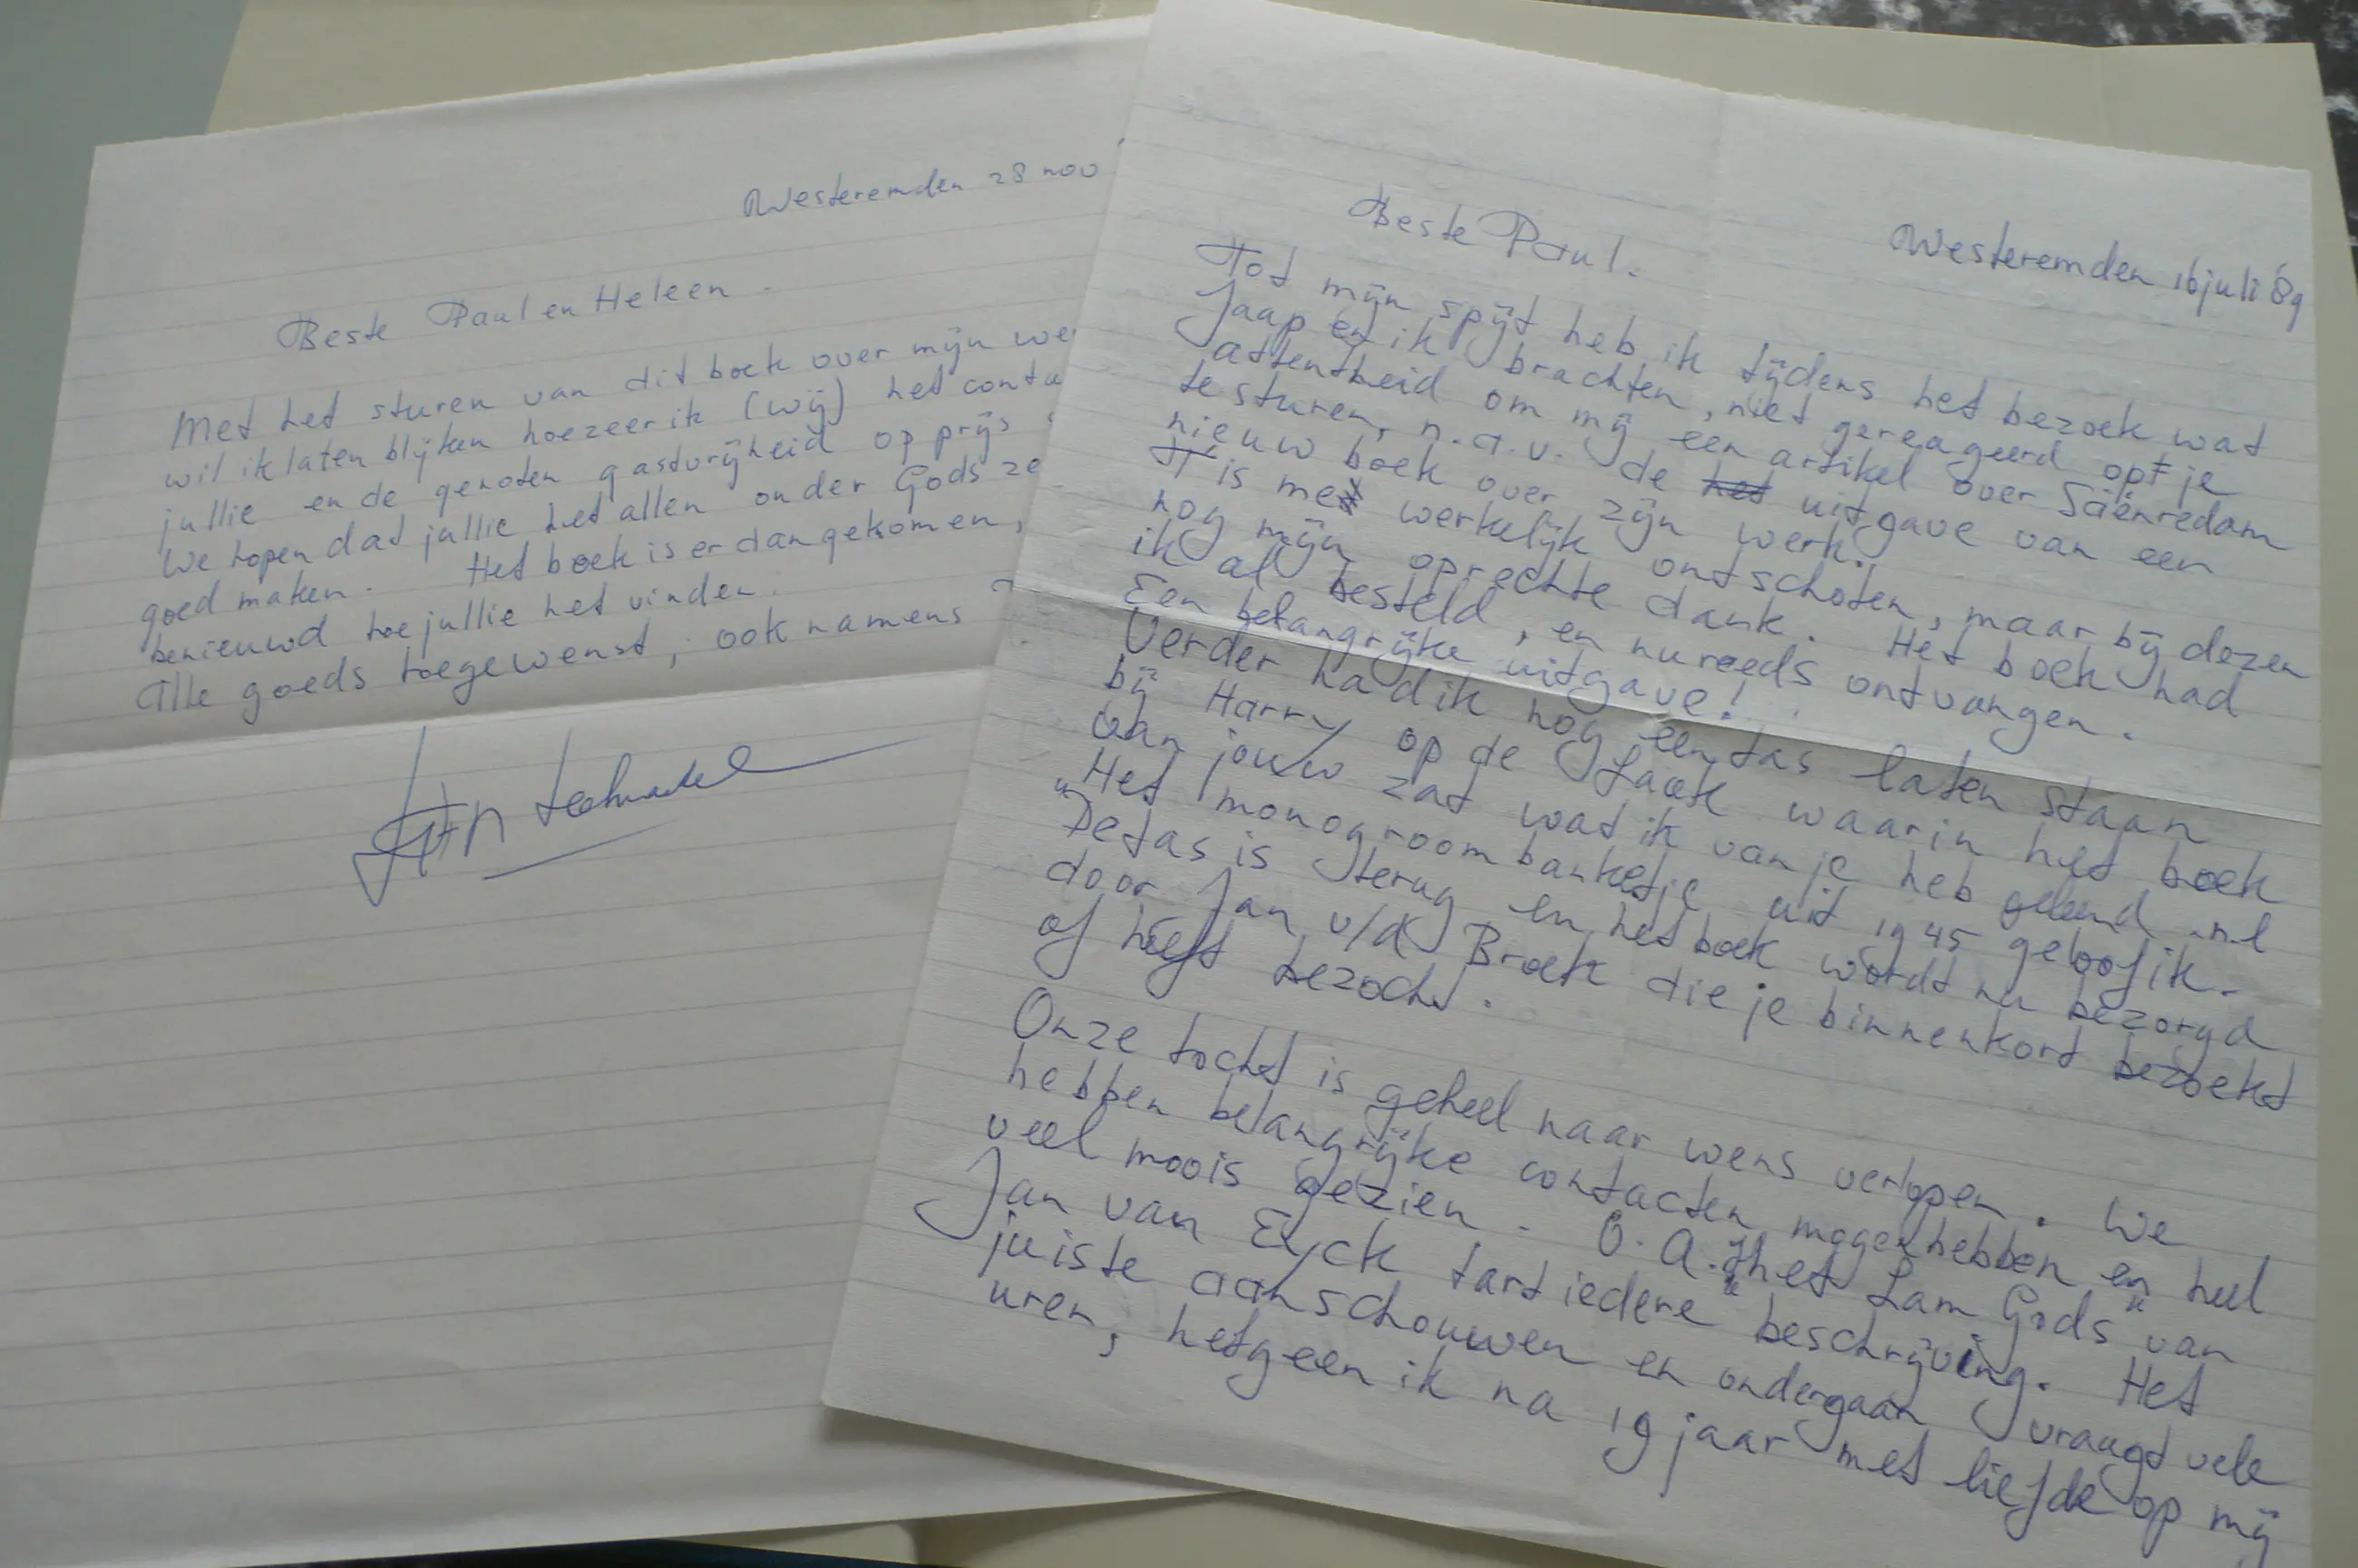 Westeremden 28 nov
Beste Paul en Heleen.
Met het sturen van dit boek over mijn we
wil ik laten blijken hoezeer ik (wij) het conta
jullie en de genoten gastvrijheid op prijs
We hopen dat jullie het allen onder Gods ze
goed maken. Het boek is er dan gekomen,
benieuwd hoe jullie het vinden.
Alle goeds toegewenst, ook namens
Westeremden 16 juli '89
Beste Paul.
Tot mijn spijt heb ik tijdens het bezoek wat
Jaap en ik brachten, niet gereageerd op je
attentheid om mij een artikel over Saenredam
te sturen, n.a.v. de het uitgave van een
nieuw boek over zijn werk.
't Is me werkelijk ontschoten, maar bij dezen
nog mijn oprechte dank. Het boek had
ik al besteld, en nu reeds ontvangen.
Een belangrijke uitgave!
Verder had ik nog een tas laten staan
bij Harry op de Laak waarin het boek
van jouw zat wat ik van je heb geleend n.l
"Het monogroombanketje uit 1945 geloof ik.
De tas is terug en het boek wordt nu bezorgd
door Jan v/d Broek die je binnenkort bezoekt
of heeft bezocht.
Onze tocht is geheel naar wens verlopen. We
hebben belangrijke contacten mogen hebben en heel
veel moois gezien. O.A. "het Lam Gods" van
Jan van Eyck tart iedere beschrijving. Het
juiste aanschouwen en ondergaan vraagt vele
uren, hetgeen ik na 19 jaar met liefde op mij